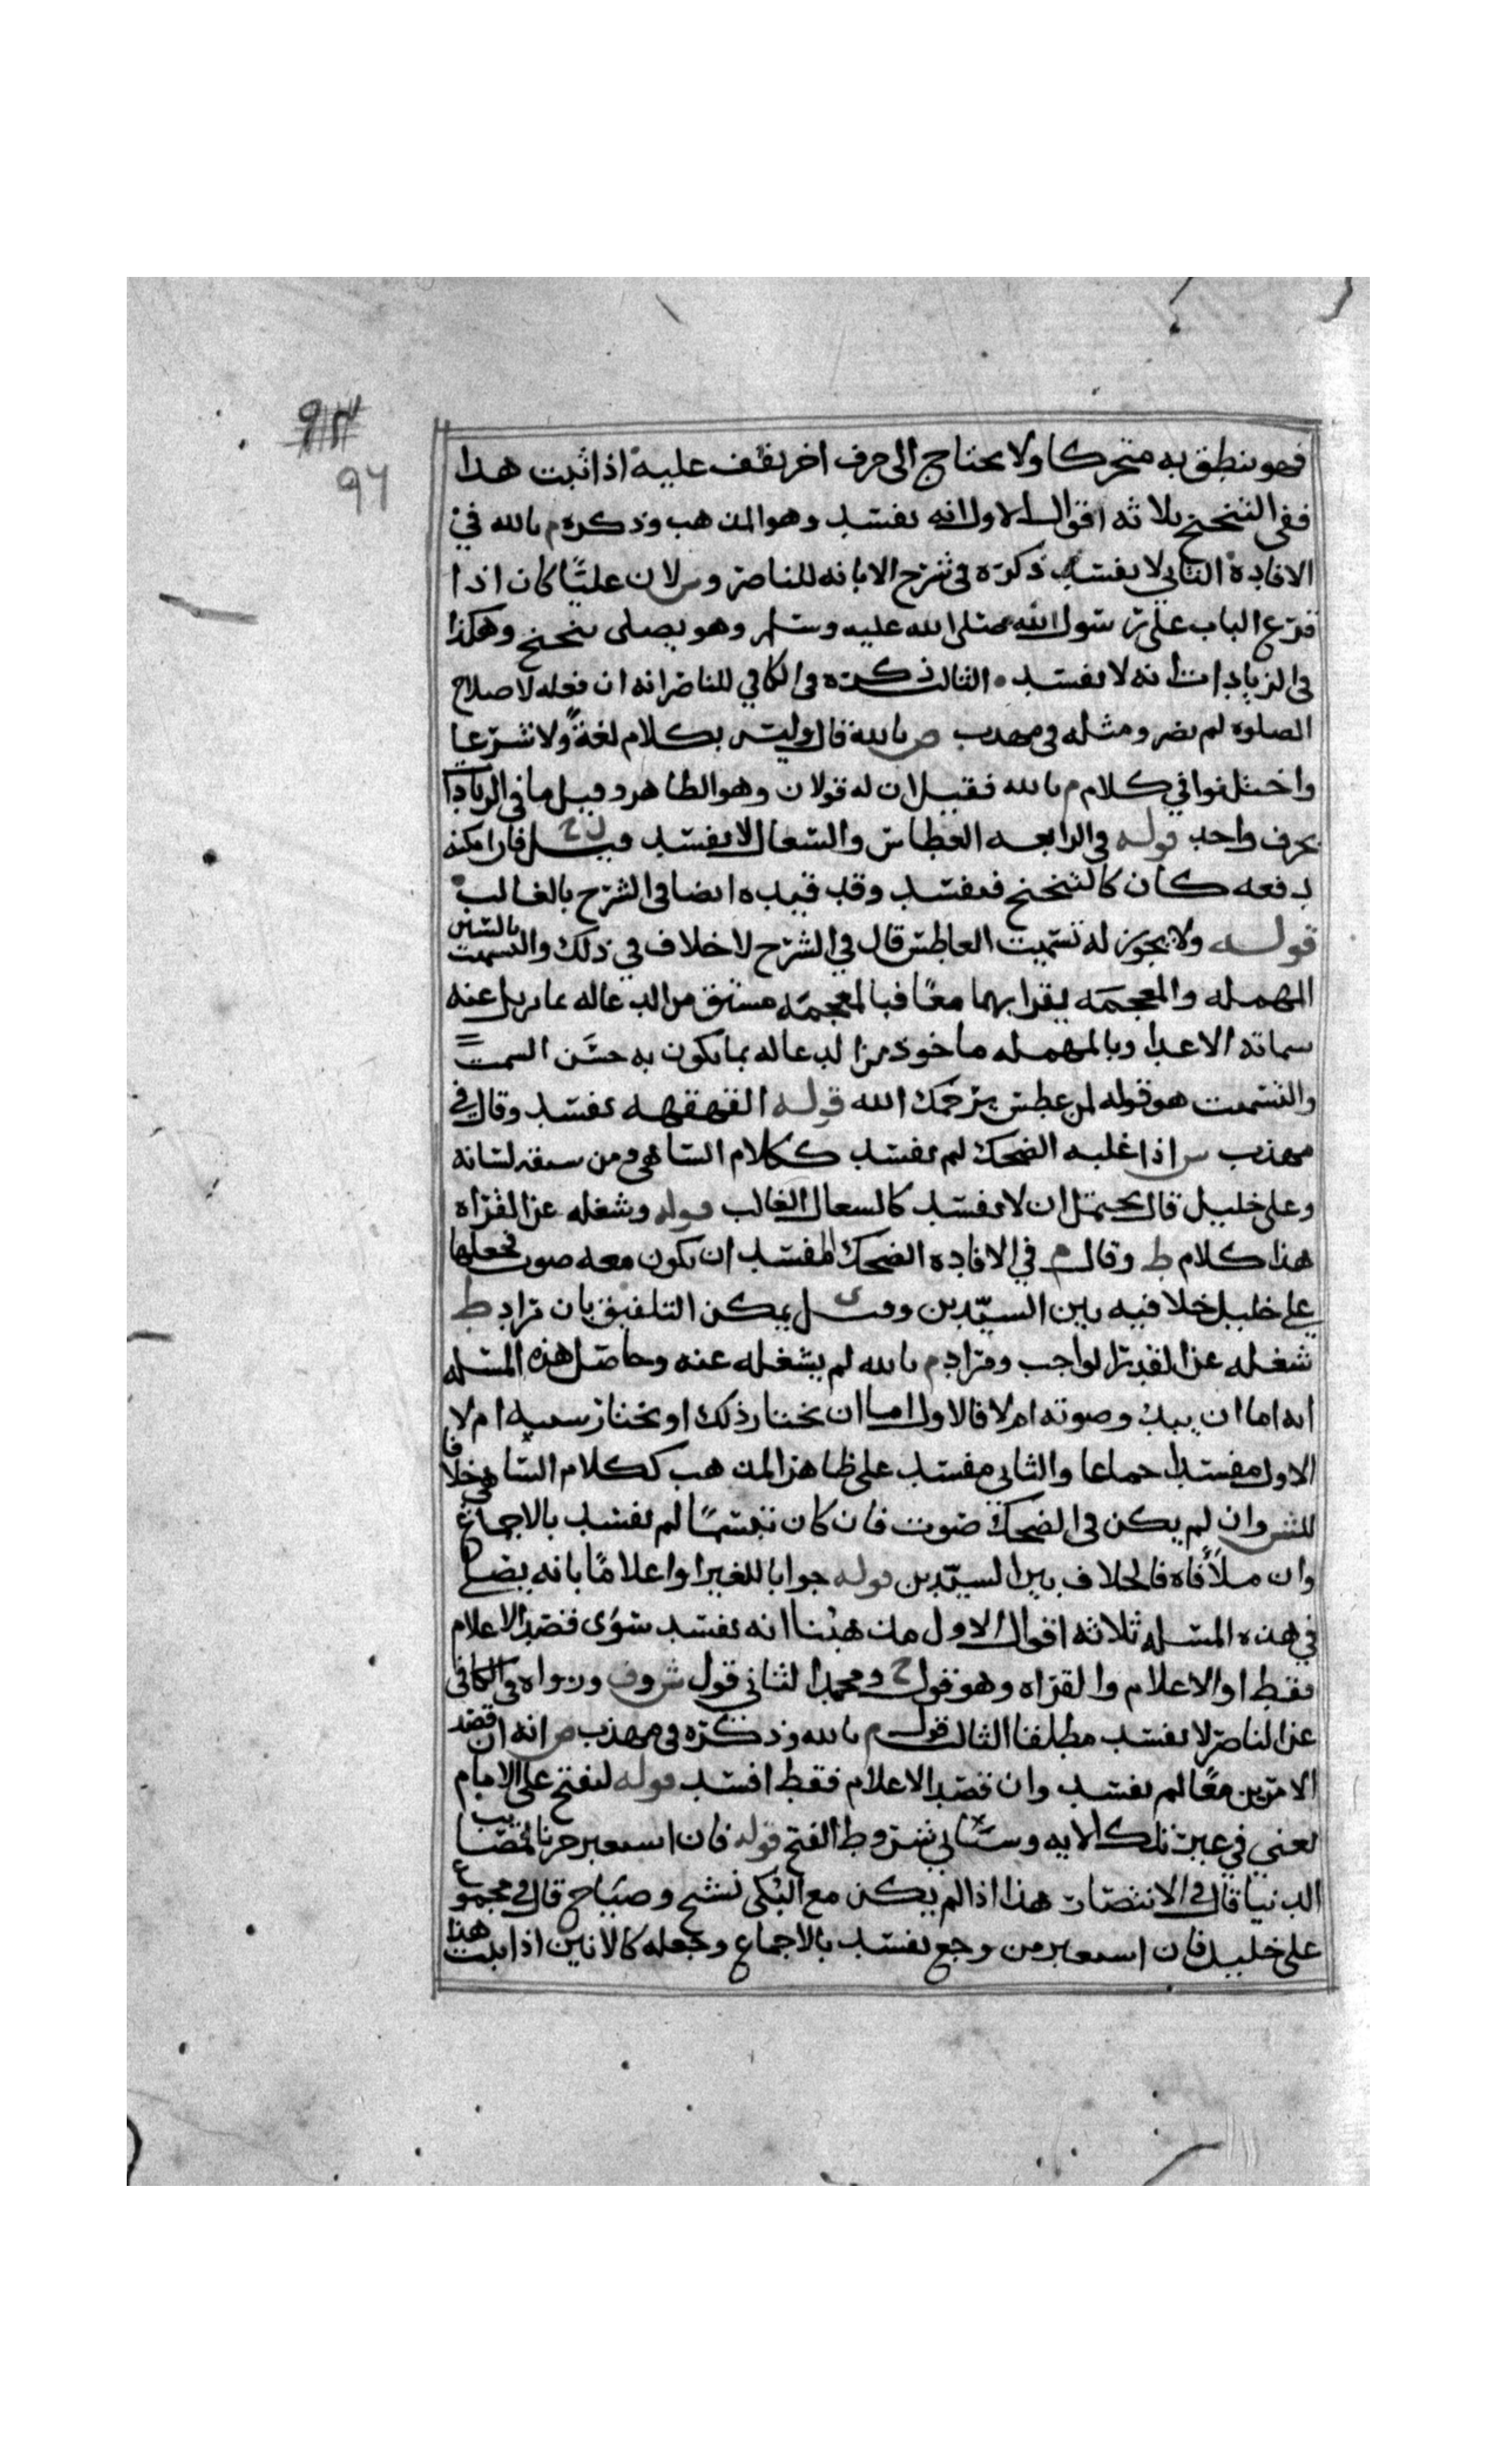 94
فهو ينطق به متحركا ولا يحتاج الى حرف اخر يقف عليه اذا ثبت هذا
ففى التنحنح ثلاثه اقوال الاول انه يفسد وهو المذهب وذكره م بالله في
الافاده الثاني لا يفسد ذكره في شرح الابانه للناصر و لان عليًا كان اذا
قرع الباب على رسول الله صلى الله عليه وسلم وهو يصلى تنحنح وهكذا
في الزيادات انه لا يفسد الثالث ذكره في الكافي للناصر انه ان فعله لاصلاح
الصلوه لم يضر ومثله في مهذب ص بالله قال وليس بكلام لغةً ولا شرعا
واختلفوا في كلام م بالله فقيل ان له قولان وهو الظاهر وقيل ما في الزيادات
بحرف واحد قوله في الرابعه العطاس والسعال لا يفسد قيل ل ح فان امكنه
دفعه كان كالتنحنح فيفسد وقد قيده ايضا في الشرح بالغالب
قوله ولا يجوز له تسميت العاطس قال في الشرح لا خلاف في ذلك والتسميت بالسين
المهمله والمعجمه يقرا بهما معًا فبالمعجمه مشتق من الدعاله بما يزيل عنه
شماته الاعدا وبالمهمله ماخوذ من الدعاله بما يكون به حسن السمت
والتسميت هو قوله لمن عطس يرحمك الله قوله القهقهه يفسد وقال في
مهذب س اذا غلبه الضحك لم يفسد ككلام الساهي ومن سبقه لسانه
وعلى خليل قال يحتمل ان لا يفسد كالسعال الغالب قوله وشغله عن القراه
هذا كلام ط وقال م في الافاده الضحك المفسد ان يكون معه صوت فجعلها
على خليل خلافيه بين السيدين وقيل ى يمكن التلفيق بان مراد ط
شغله عن القدر الواجب ومراد م بالله لم يشغله عنه وحاصل هذه المسله
انه اما ان يبدو صوته ام لا فالاول اما ان يختار ذلك او يختار سببه ام لا
الاول مفسد اجماعا والثاني مفسد على ظاهر المذهب ككلام الساهي خلافا
للش وان لم يكن في الضحك صوت فان كان تبسمًا لم يفسد بالاجماع
وان ملأ فاه فالخلاف بين السيدين قوله جوابا للغير او اعلامًا بانه يصلى
في هذه المسله ثلاثه اقوال الاول مذهبنا انه يفسد سوى قصد الاعلام
فقط او الاعلام والقراه وهو قول ح ومحمد الثاني قول ش وف ورواه في الكافي
عن الناصر لا يفسد مطلقا الثالث قول م بالله وذكره في مهذب ص انه ان قصد
الامرين معًا لم يفسد وان قصد الاعلام فقط افسد قوله ليفتح على الامام
يعني في غير تلك الايه وستاتي شروط الفتح قوله فان استعبر حزنا لمصايب
الدنيا قال في الانتصار هذا اذا لم يكن مع البكى نشج وصياح قال في مجموع
على خليل فان استعبر من وجع يفسد بالاجماع وجعله كالانين اذا ثبت هذا